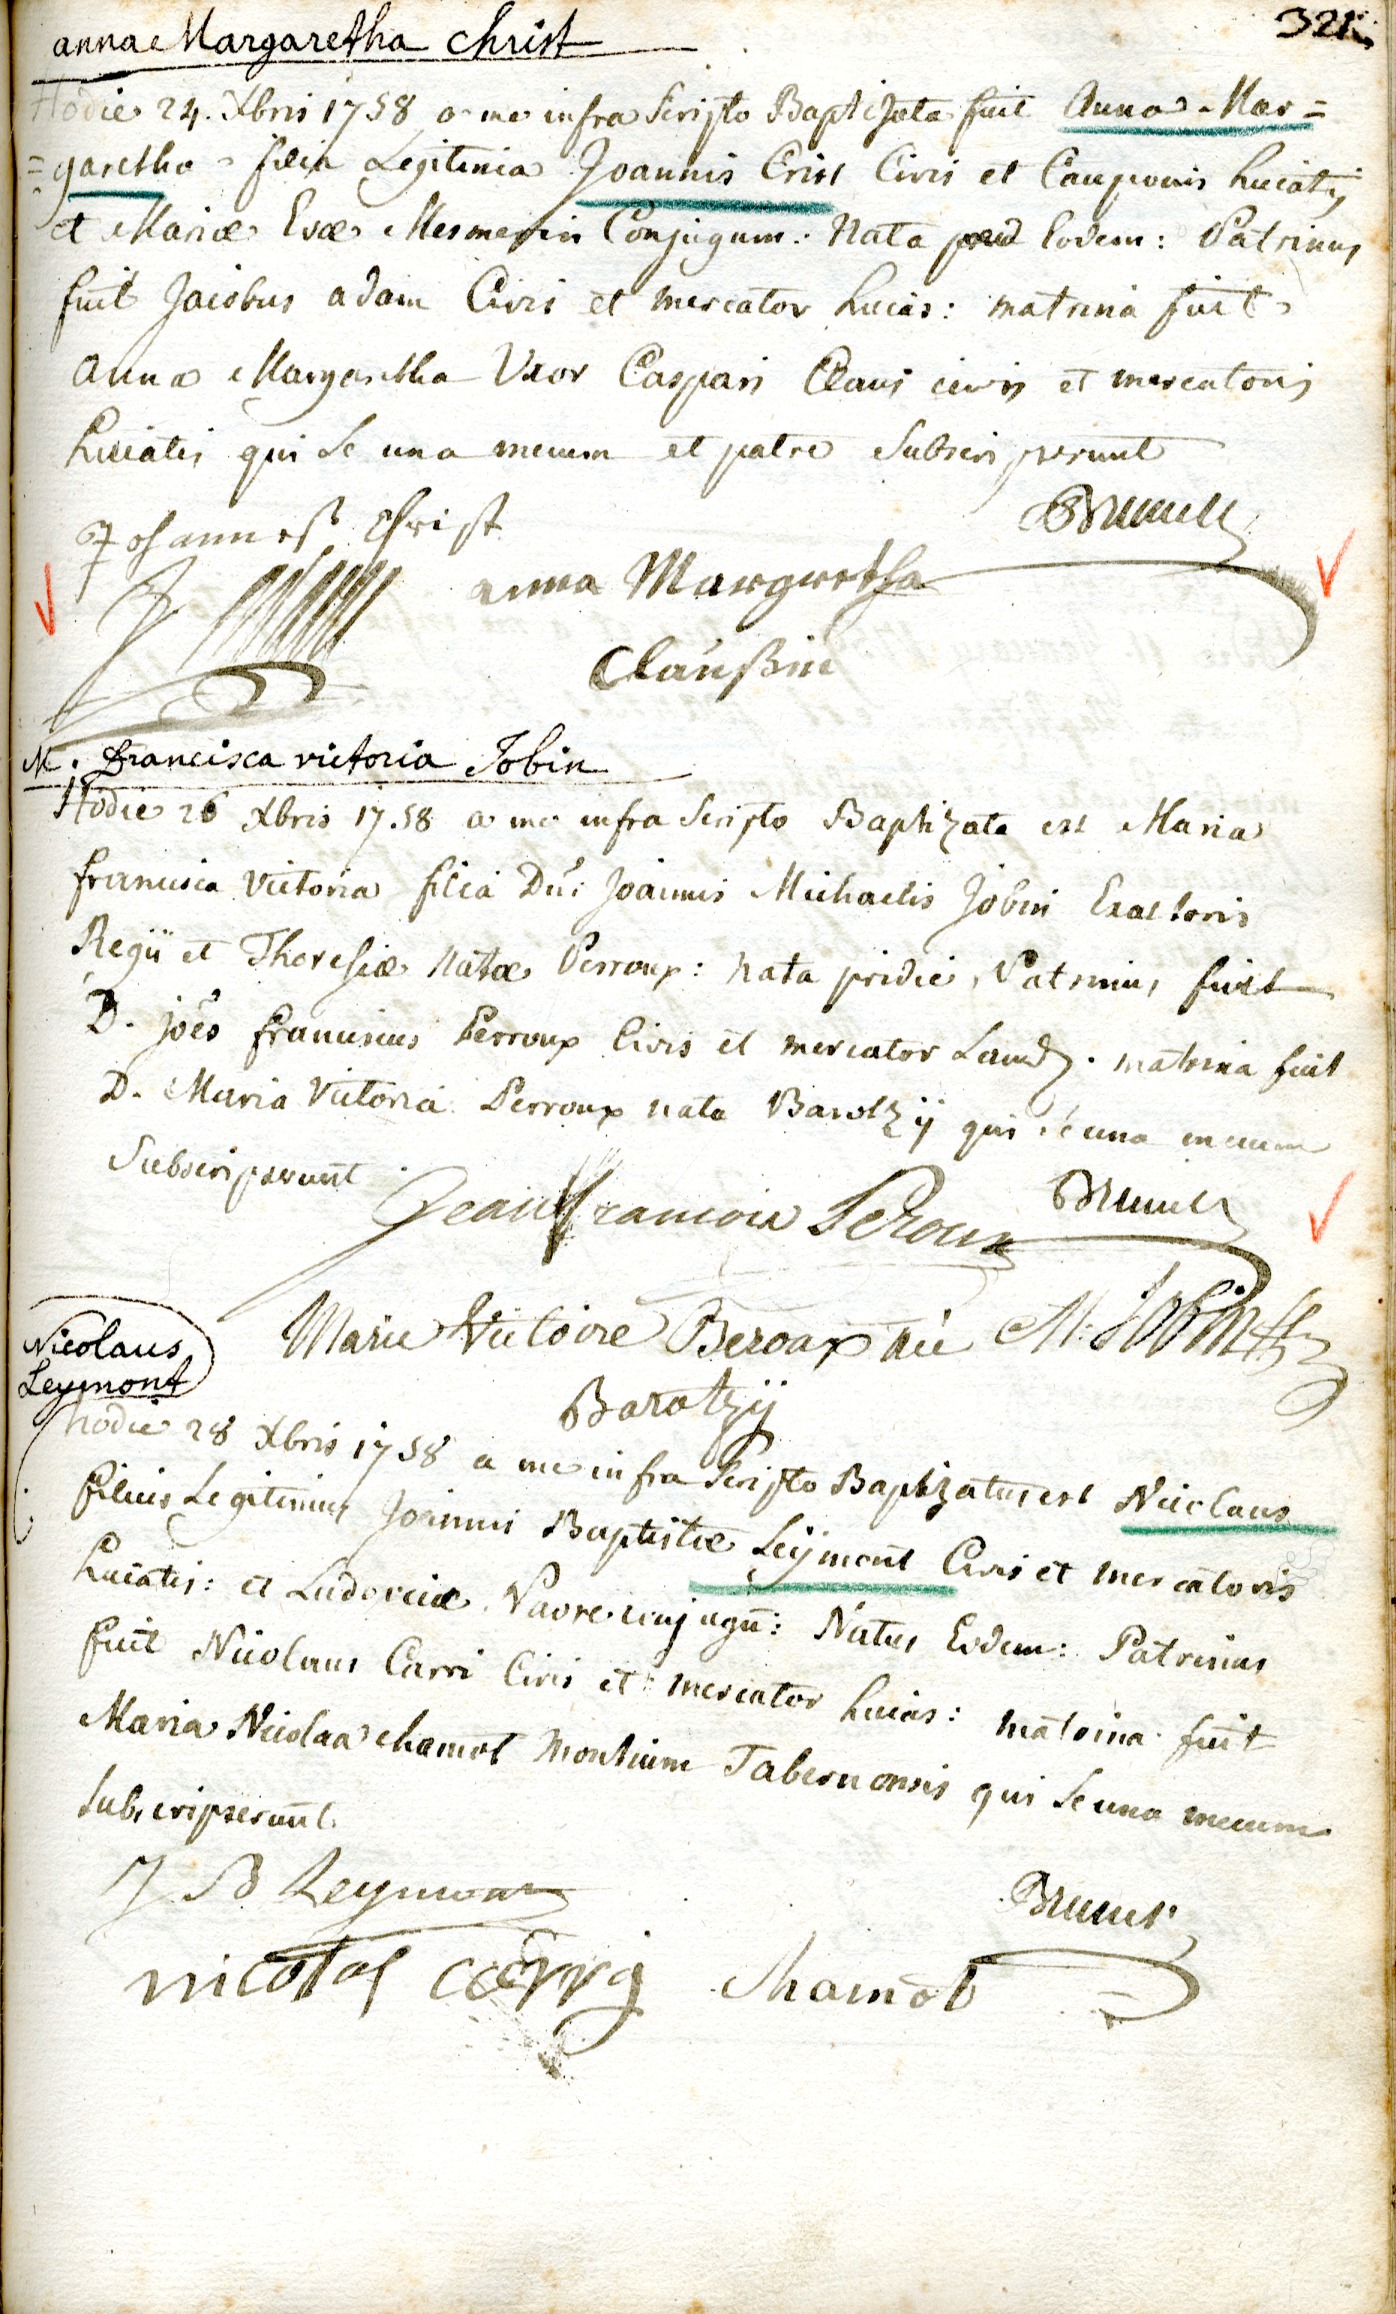 321
anna Margaretha Christ
Hodie 24. Xbris 1758 a me infra Scripto Baptizata fuit Anna Mar=
=garetha filia Legitimia Joannis Crist Civis et Cauponis huiatis
et Mariæ Evæ Mesmerin Conjugum: Nata Eodem: Patrinus
fuit Jacobus adam Civis et mercator huias: matrina fuit
Anna Margaretha Uxor Caspari Claus civis et mercatoris
huiatis qui Se una mecum et patre Subscripserunt
Johanneß Christ
Brunck
anna Margaretha
Claußin
M. francisca victoria Jobin
Hodie 26 Xbris 1758 a me infra Scripto Baptizata est Maria
francisca Victoria filia Dni: Joannis Michaelis Jobin Exactoris
Regii et Theresiæ Natæ Perroux: nata pridie, Patrinus fuit
D. joes franciscus Perroux Civis et mercator Laud. matrina fuit
D. Maria Victoria Perroux nata Barotzÿ qui se una mecum
Subscripserunt
Jean francois Peroux
Brunck
Marie Victoire Beroux née M: Jobin
Baratzÿ
Nicolaus
Leymont
hodie 28 Xbris 1758 a me infra Scripto Baptizatus est Nicolaus
filius Legitimus Joannis Baptistæ Leÿmont Civis et mercatoris
huiatis: et Ludovicæ Pavre conjugū: Natus Eodem: Patrinus
fuit Nicolaus Carri Civis et mercator huias: matrina fuit
Maria Nicolaa chamot Montium Tabernensis qui Se una mecum
Subscripserunt.
J B Leymont
Brunck
nicolas Cerry chamot